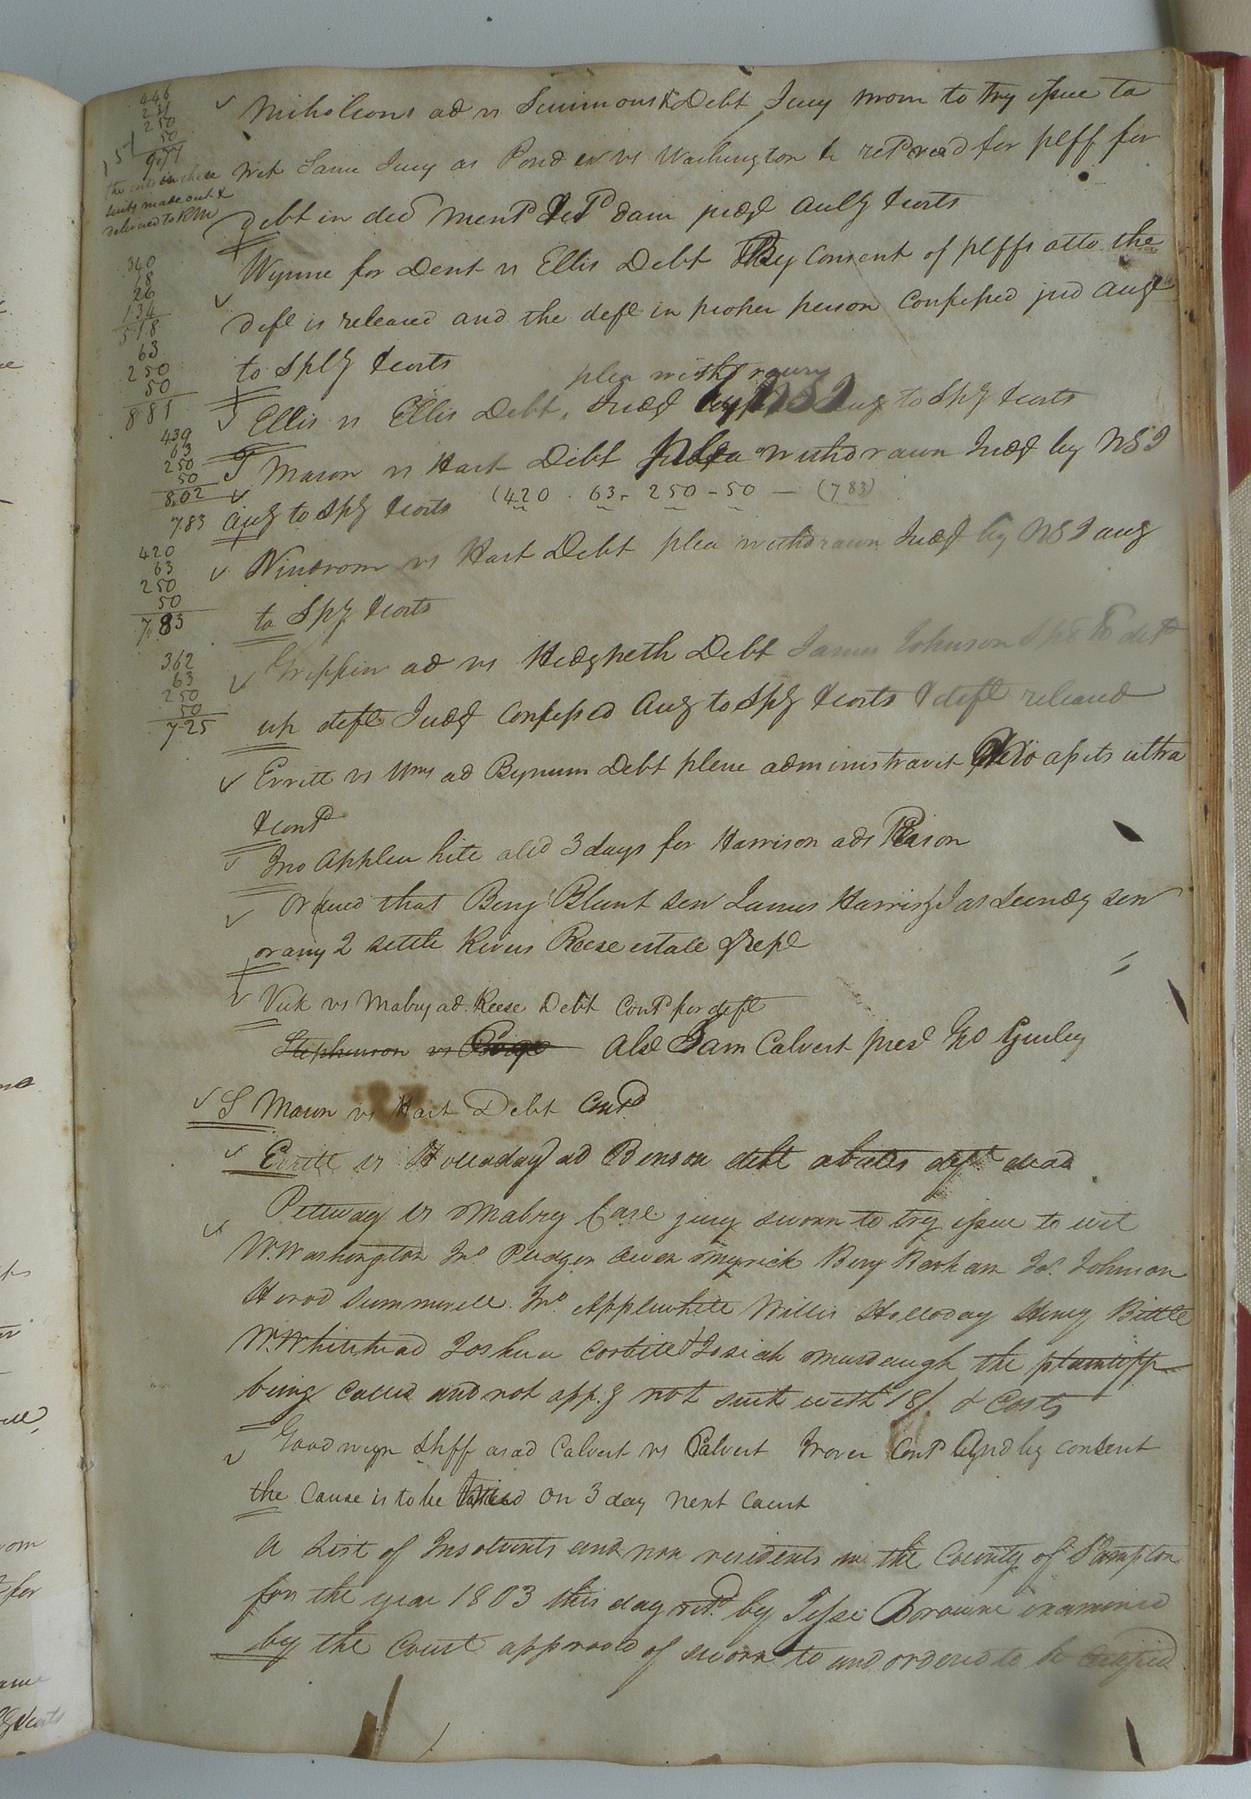 446
231
250
50
977
the costs in these
suits made out &
Nicholsons ad vs Simmons Debt Jury sworn to try issue to
wit Same Jury as Pond ex vs Washington & retd verd for plff for
debt in decd Mentd & 1d dam judgt Aulg & costs
340
68
26
134
518
63
250
50
881
Wynne for Dent vs Ellis Debt By Consent of plffs atto the
deft is released and the deft in proper person Confessed jud aulg
to Splg & costs
plea withdrawn
Ellis vs Ellis Debt, Judgt aulg to Splg & costs
439
63
250
50
8.02
T Mason vs Hart Debt plea withdrawn Judgt by NSI
7.83 aulg to Splg & costs (420 . 63 - 250 - 50 — (783)
420
63
250
50
7.83
Windrom vs Hart Debt plea withdrawn Judgt by NSI aulg
to Splg & costs
362
63
250
50
7.25
Griffin ad vs Hedgpeth Debt James Johnson
up deft Judgt Confessed aulg to Splg & costs & deft released
Errett vs Wms ad Bynum Debt plene administravit assets ultra
& contd
Jno Applewhite alld 3 days for Harrison ads Eason
Ordered that Benj Blunt sen James Harris & Jas Gundy sen
or any 2 settle Rivers Reese estate & rept
Vick vs Mabry ad. Reese Debt Contd for deft
Stephenson vs Alld Sam Calvert pres Jno Gurley
S Mason vs Hart Debt Contd
Errett vs Holladay ad Benson debt abates deft dead
Pettway vs Mabry Case jury sworn to try issue to wit
W. Washington Jno Pudgen Owen Myrick Benj Barham Jas. Johnson
Herod Summerell Jno Applewhite Willis Holloday Henry Bittle
W. Whitehead Joshua Corbitt & Josiah Murdaugh the plaintiff
being called and not appg not suit with 18/ & Costs
Goodwyn Shff as ad Calvert vs Calvert Trover Contd And by consent
the Cause is to be tried on 3 day next Court
A List of Insolvents and non residents in the County of Sampton
for the year 1803 this day retd by Jesse Browne examined
by the Court approved of sworn to and ordered to be